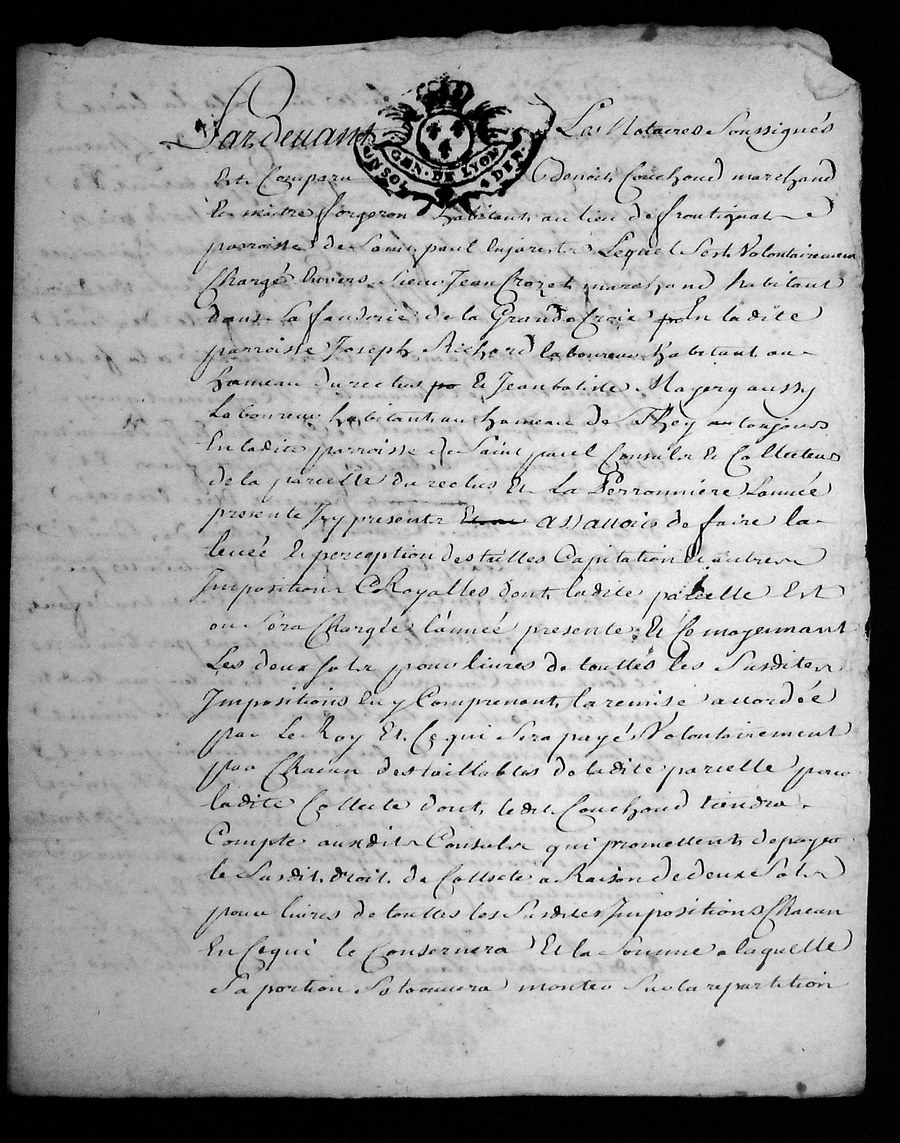 Pardevant Les Notaires Soussignés
GEN. DE LYON
UN SOL 4 DEN.
Est Comparu Benoit Couchoud marchand
Et maitre forgeron habitant au lieu de frontignat
parroisse de Saint paul Enjarest Lequel Sest Volontairement
Chargé Envers Sieur Jean Crozet marchand habitant
dans La fauderie de la Grande Croix En ladite
parroisse Joseph Richard laboureur habitant au
hameau du reclus Et Jean batiste Magery aussy
Laboureur habitant au hameau de toujours
En ladite parroisse de Saint paul Consuls Et Collecteurs
de la parcelle du reclus Et La Perronniere Lannée
presente Icy presents assavoir de faire la
levée Et perception des tailles Capitation Et autres
Impositions Royalles dont ladite parcelle Est
ou Sera Chargée lannée presente Et Ce moyennant
Les deux Sols pour livres de touttes les Susdites
Impositions En y Comprenant la remise accordée
par Le Roy Et Ce qui Sera payé Volontairement
par Chacun des taillables de ladite parcelle pour
ladite Collecte dont ledit Couchoud tiendra
Compte ausdits Consuls qui promettent de payer
le Susdit droit de Collecte a Raison de deux Sols
pour livres de touttes les Susdites Impositions Chacun
En Ce qui le Consernera Et la Somme a laquelle
Sa portion Se trouvera monter Sur la repartition